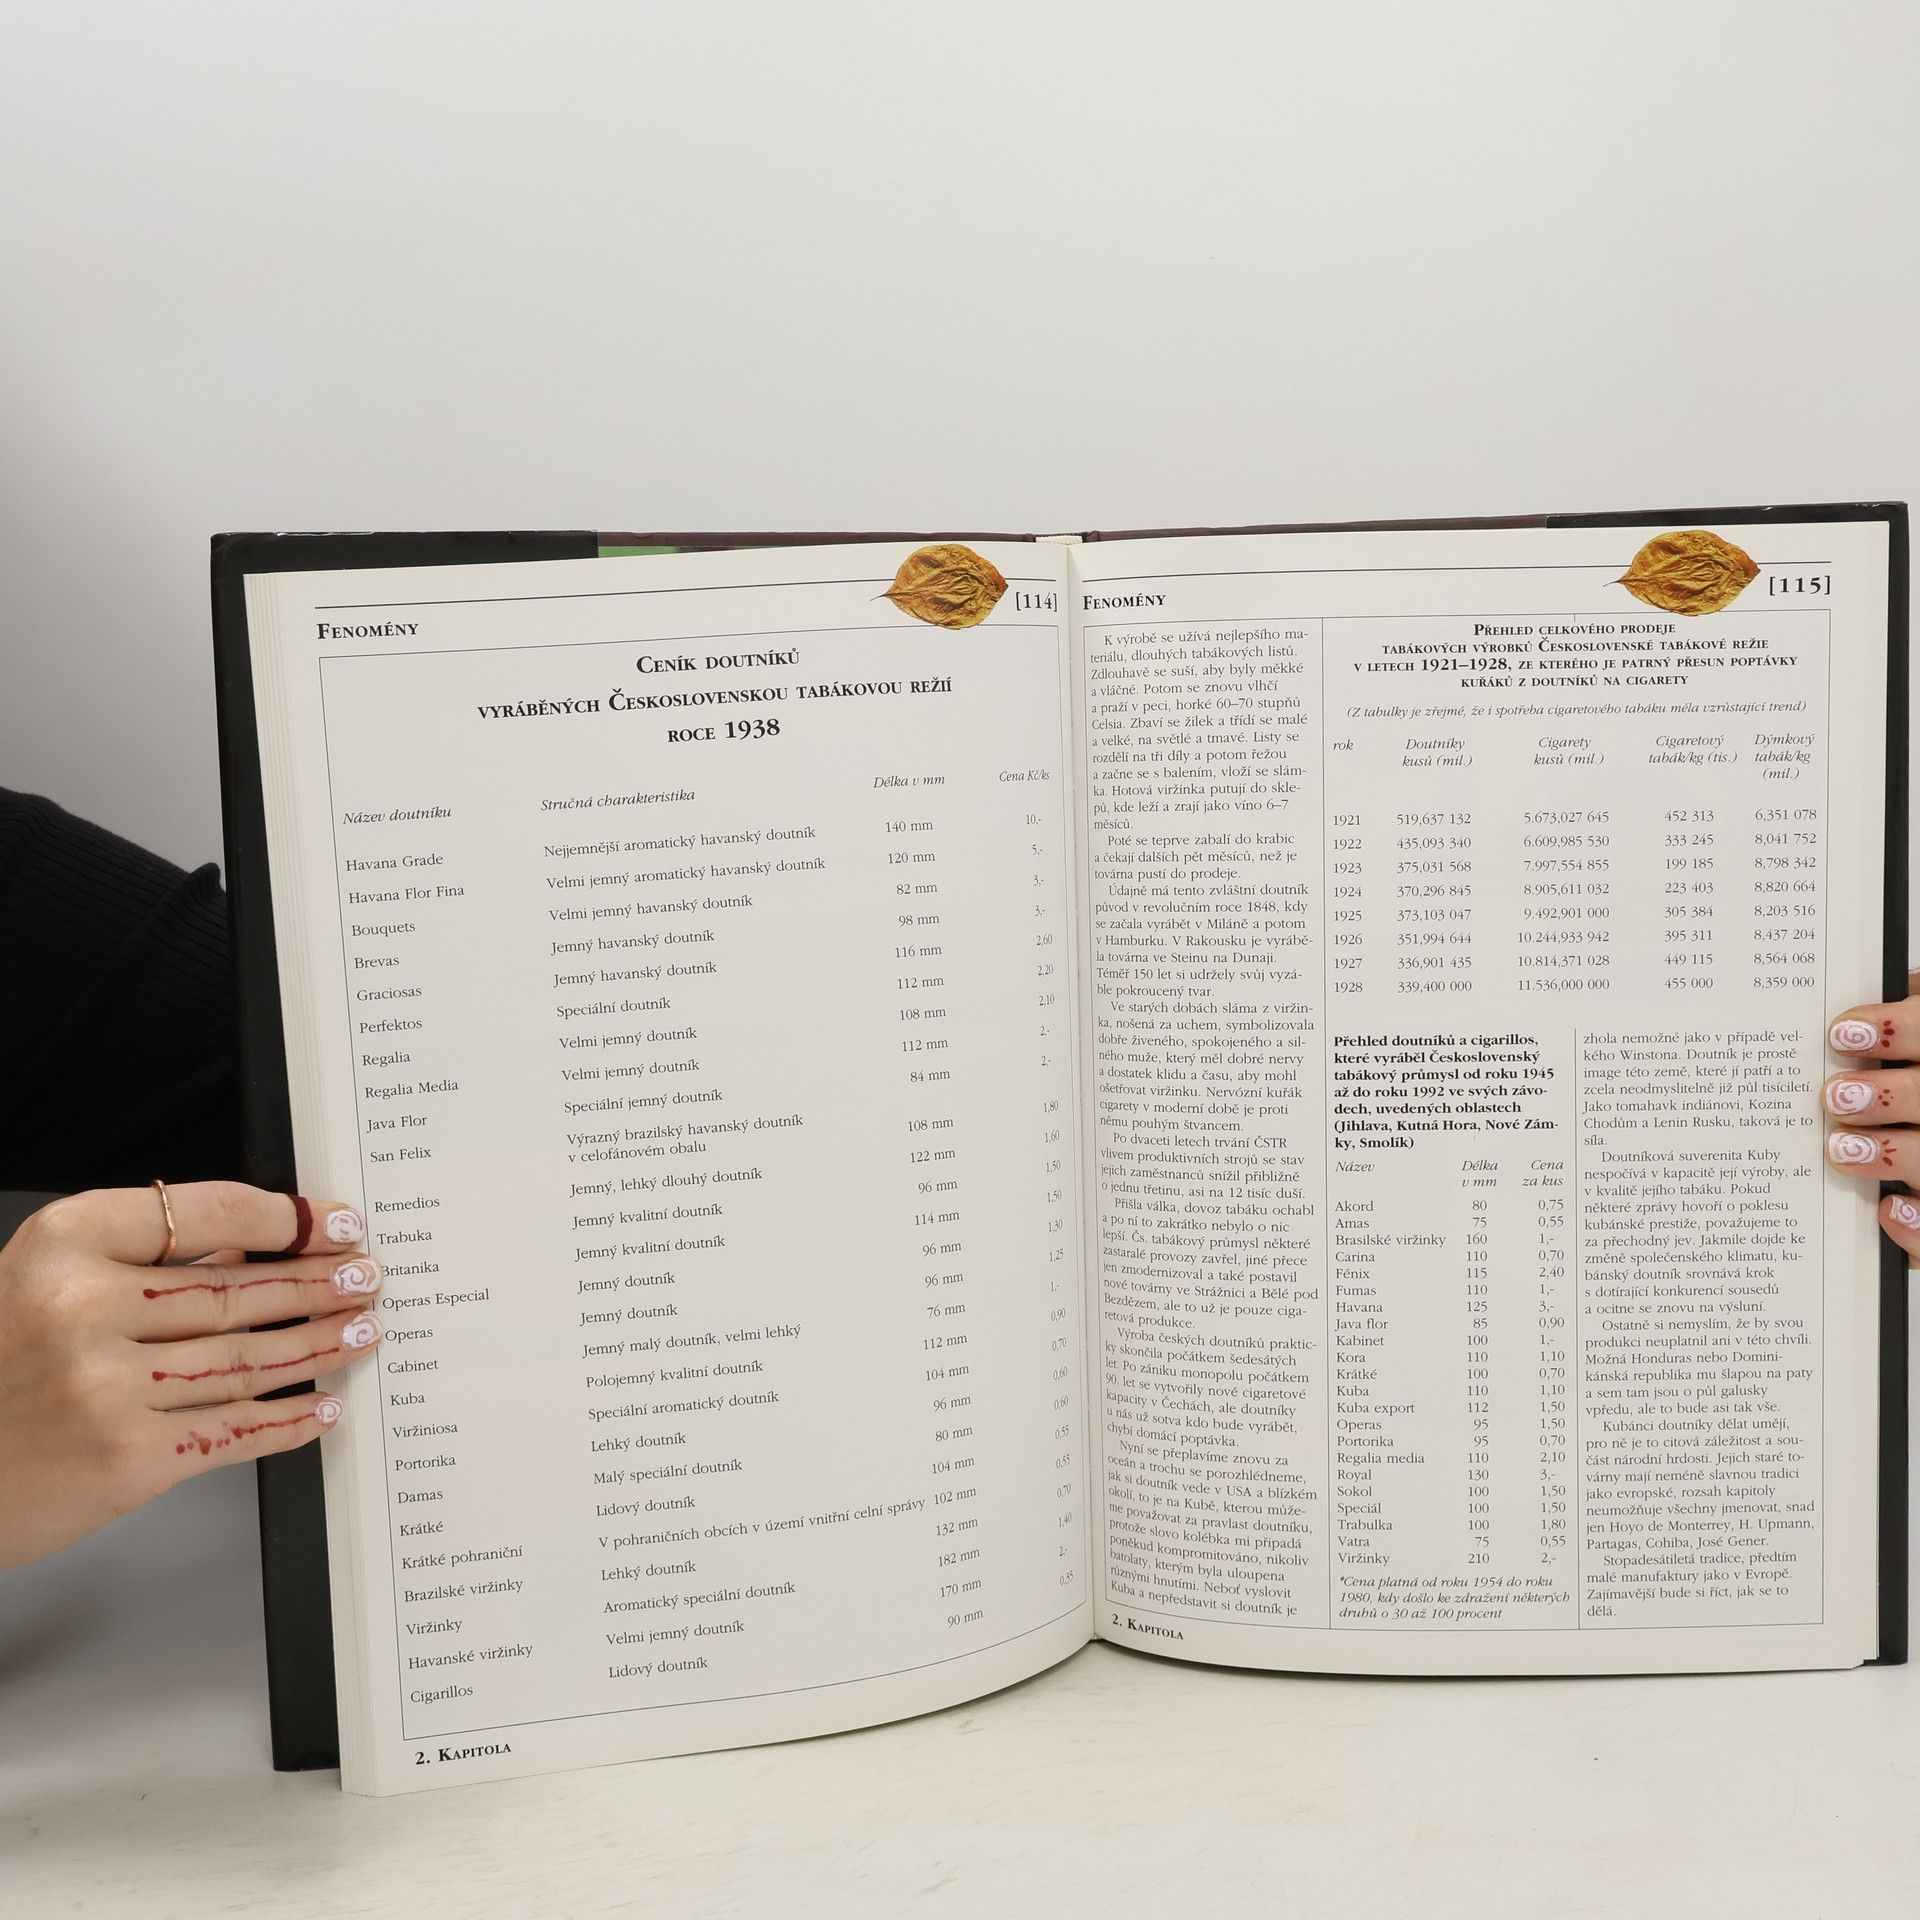 [114]
FENOMÉNY
CENÍK DOUTNÍKŮ
VYRÁBĚNÝCH ČESKOSLOVENSKOU TABÁKOVOU REŽIÍ
ROCE 1938
Název doutníku Stručná charakteristika Délka v mm Cena Kč/ks
Havana Grade Nejjemnější aromatický havanský doutník 140 mm 10,-
Havana Flor Fina Velmi jemný aromatický havanský doutník 120 mm 5,-
Bouquets Velmi jemný havanský doutník 82 mm 3,-
Brevas Jemný havanský doutník 98 mm 3,-
Graciosas Jemný havanský doutník 116 mm 2,60
Perfektos Speciální doutník 112 mm 2,20
Regalia Velmi jemný doutník 108 mm 2,10
Regalia Media Velmi jemný doutník 112 mm 2,-
Java Flor Speciální jemný doutník 84 mm 2,-
San Felix Výrazný brazilský havanský doutník 108 mm 1,80
v celofánovém obalu
Remedios Jemný, lehký dlouhý doutník 122 mm 1,60
Trabuka Jemný kvalitní doutník 96 mm 1,50
Britanika Jemný kvalitní doutník 114 mm 1,50
Operas Especial Jemný doutník 96 mm 1,30
Operas Jemný doutník 96 mm 1,25
Cabinet Jemný malý doutník, velmi lehký 76 mm 1,-
Kuba Polojemný kvalitní doutník 112 mm 0,90
Viržiniosa Speciální aromatický doutník 104 mm 0,70
Portorika Lehký doutník 96 mm 0,60
Damas Malý speciální doutník 80 mm 0,60
Krátké Lidový doutník 104 mm 0,55
Krátké pohraniční V pohraničních obcích v území vnitřní celní správy 102 mm 0,55
Brazilské viržinky Lehký doutník 132 mm 0,70
Viržinky Aromatický speciální doutník 182 mm 1,40
Havanské viržinky Velmi jemný doutník 170 mm 2,-
Cigarillos Lidový doutník 90 mm 0,35
2. KAPITOLA
FENOMÉNY
[115]
K výrobě se užívá nejlepšího ma-
teriálu, dlouhých tabákových listů.
Zdlouhavě se suší, aby byly měkké
a vláčné. Potom se znovu vlhčí
a praží v peci, horké 60–70 stupňů
Celsia. Zbaví se žilek a třídí se malé
a velké, na světlé a tmavé. Listy se
rozdělí na tři díly a potom řežou
a začne se s balením, vloží se slám-
ka. Hotová viržinka putují do skle-
pů, kde leží a zrají jako víno 6–7
měsíců.
Poté se teprve zabalí do krabic
a čekají dalších pět měsíců, než je
továrna pustí do prodeje.
Údajně má tento zvláštní doutník
původ v revolučním roce 1848, kdy
se začala vyrábět v Miláně a potom
v Hamburku. V Rakousku je vyrábě-
la továrna ve Steinu na Dunaji.
Téměř 150 let si udržely svůj vyzá-
ble pokroucený tvar.
Ve starých dobách sláma z viržin-
ka, nošená za uchem, symbolizovala
dobře živeného, spokojeného a sil-
ného muže, který měl dobré nervy
a dostatek klidu a času, aby mohl
ošetřovat viržinku. Nervózní kuřák
cigarety v moderní době je proti
němu pouhým štvancem.
Po dvaceti letech trvání ČSTR
vlivem produktivních strojů se stav
jejich zaměstnanců snížil přibližně
o jednu třetinu, asi na 12 tisíc duší.
Přišla válka, dovoz tabáku ochabl
a po ní to zakrátko nebylo o nic
lepší. Čs. tabákový průmysl některé
zastaralé provozy zavřel, jiné přece
jen zmodernizoval a také postavil
nové továrny ve Strážnici a Bělé pod
Bezdězem, ale to už je pouze ciga-
retová produkce.
Výroba českých doutníků praktic-
ky skončila počátkem šedesátých
let. Po zániku monopolu počátkem
90. let se vytvořily nové cigaretové
kapacity v Čechách, ale doutníky
u nás už sotva kdo bude vyrábět,
chybí domácí poptávka.
Nyní se přeplavíme znovu za
oceán a trochu se porozhlédneme,
jak si doutník vede v USA a blízkém
okolí, to je na Kubě, kterou může-
me považovat za pravlast doutníku,
protože slovo kolébka mi připadá
poněkud kompromitováno, nikoliv
batolaty, kterým byla uloupena
různými hnutími. Neboť vyslovit
Kuba a nepředstavit si doutník je
PŘEHLED CELKOVÉHO PRODEJE
TABÁKOVÝCH VÝROBKŮ ČESKOSLOVENSKÉ TABÁKOVÉ REŽIE
V LETECH 1921–1928, ZE KTERÉHO JE PATRNÝ PŘESUN POPTÁVKY
KUŘÁKŮ Z DOUTNÍKŮ NA CIGARETY
(Z tabulky je zřejmé, že i spotřeba cigaretového tabáku měla vzrůstající trend)
rok Doutníky Cigarety Cigaretový Dýmkový
kusů (mil.) kusů (mil.) tabák/kg (tis.) tabák/kg
(mil.)
1921 519,637 132 5.673,027 645 452 313 6,351 078
1922 435,093 340 6.609,985 530 333 245 8,041 752
1923 375,031 568 7.997,554 855 199 185 8,798 342
1924 370,296 845 8.905,611 032 223 403 8,820 664
1925 373,103 047 9.492,901 000 305 384 8,203 516
1926 351,994 644 10.244,933 942 395 311 8,437 204
1927 336,901 435 10.814,371 028 449 115 8,564 068
1928 339,400 000 11.536,000 000 455 000 8,359 000
Přehled doutníků a cigarillos,
které vyráběl Československý
tabákový průmysl od roku 1945
až do roku 1992 ve svých závo-
dech, uvedených oblastech
(Jihlava, Kutná Hora, Nové Zám-
ky, Smolík)
Název Délka Cena
v mm za kus
Akord 80 0,75
Amas 75 0,55
Brasilské viržinky 160 1,-
Carina 110 0,70
Fénix 115 2,40
Fumas 110 1,-
Havana 125 3,-
Java flor 85 0,90
Kabinet 100 1,-
Kora 110 1,10
Krátké 100 0,70
Kuba 110 1,10
Kuba export 112 1,50
Operas 95 1,50
Portorika 95 0,70
Regalia media 110 2,10
Royal 130 3,-
Sokol 100 1,50
Speciál 100 1,50
Trabulka 100 1,80
Vatra 75 0,55
Viržinky 210 2,-
*Cena platná od roku 1954 do roku
1980, kdy došlo ke zdražení některých
druhů o 30 až 100 procent
zhola nemožné jako v případě vel-
kého Winstona. Doutník je prostě
image této země, které jí patří a to
zcela neodmyslitelně již půl tisíciletí.
Jako tomahavk indiánovi, Kozina
Chodům a Lenin Rusku, taková je to
síla.
Doutníková suverenita Kuby
nespočívá v kapacitě její výroby, ale
v kvalitě jejího tabáku. Pokud
některé zprávy hovoří o poklesu
kubánské prestiže, považujeme to
za přechodný jev. Jakmile dojde ke
změně společenského klimatu, ku-
bánský doutník srovnává krok
s dotírající konkurencí sousedů
a ocitne se znovu na výsluní.
Ostatně si nemyslím, že by svou
produkci neuplatnil ani v této chvíli.
Možná Honduras nebo Domini-
kánská republika mu šlapou na paty
a sem tam jsou o půl galusky
vpředu, ale to bude asi tak vše.
Kubánci doutníky dělat umějí,
pro ně je to citová záležitost a sou-
část národní hrdosti. Jejich staré to-
várny mají neméně slavnou tradici
jako evropské, rozsah kapitoly
neumožňuje všechny jmenovat, snad
jen Hoyo de Monterrey, H. Upmann,
Partagas, Cohiba, José Gener.
Stopadesátiletá tradice, předtím
malé manufaktury jako v Evropě.
Zajímavější bude si říct, jak se to
dělá.
2. KAPITOLA